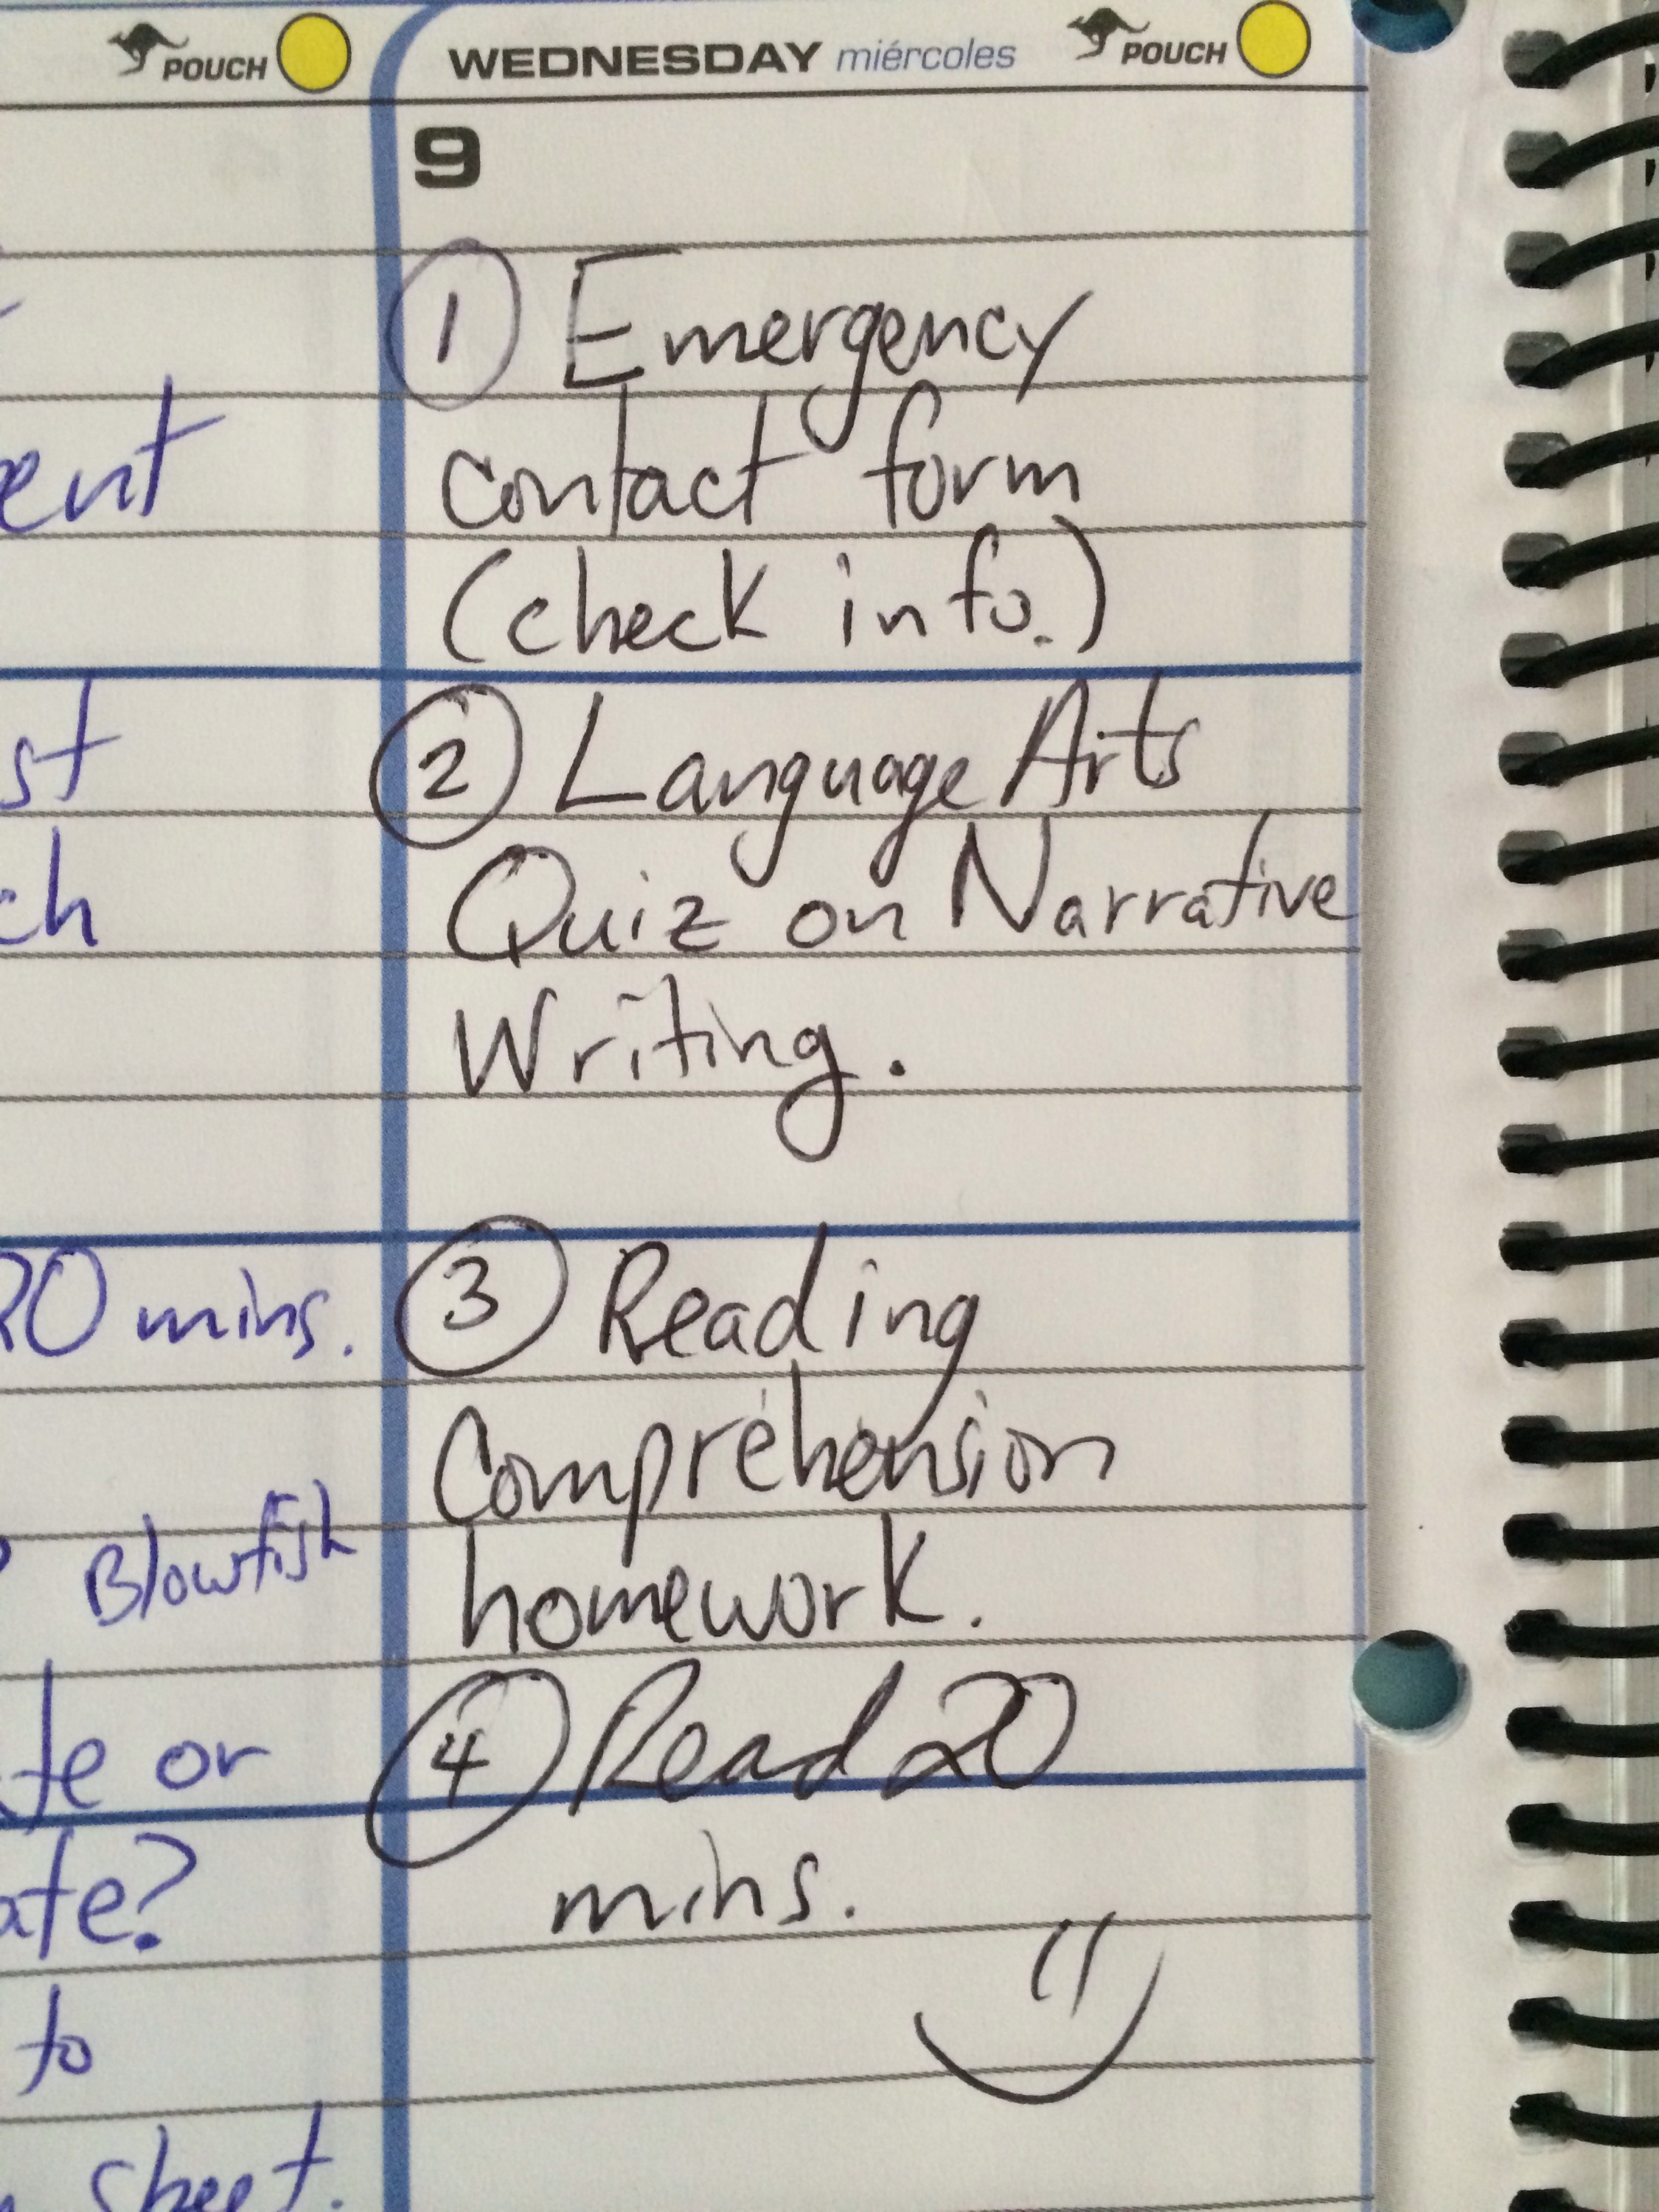 POUCH
WEDNESDAY miércoles POUCH
9
1 Emergency
contact form
(check info.)
2 Language Arts
Quiz on Narrative
Writing.
3 Reading
Comprehension
homework.
4 Read 20
mins.
ent
st
ch
20 mins.
Blowfish
te or
ate?
to
sheet.